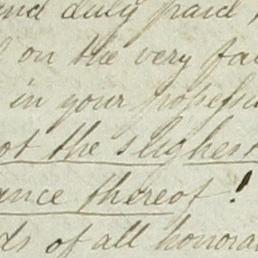 and duly paid,
on the very fa
in your possess
ot the slighest
ance thereof!
ds of all honora